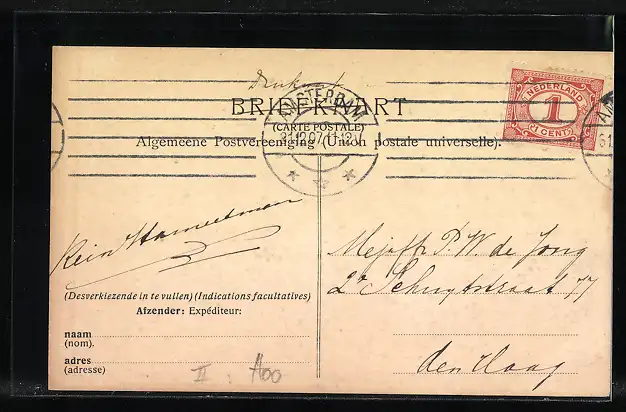 BRIEFKAART
NEDERLAND
1
(1 CENT)
AMSTERDAM
(CARTE POSTALE)
31.12.07.11-12.V
Algemeene Postvereeniging (Union postale universelle).
Mejuffr P. W. de Jong
2e Schuytstraat 77
den Haag
(Desverkiezende in te vullen) (Indications facultatives)
Afzender: Expéditeur:
naam
(nom).
adres
(adresse)
II